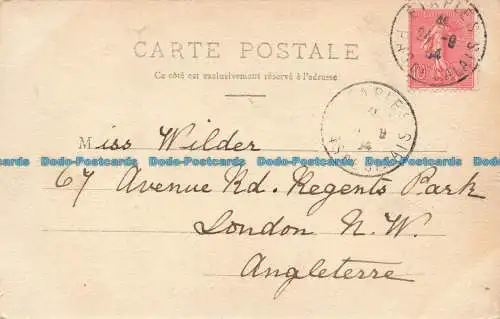 CARTE POSTALE
Ce côté est exclusivement réservé à l'adresse
ETAPLES
PAS DE CALAIS
Miss Wilder
67 Avenue Rd. Regents Park
London N.W.
Angleterre
Dodo-Postcards Dodo-Postcards Dodo-Postcards Dodo-Postcards Dodo-Postcards